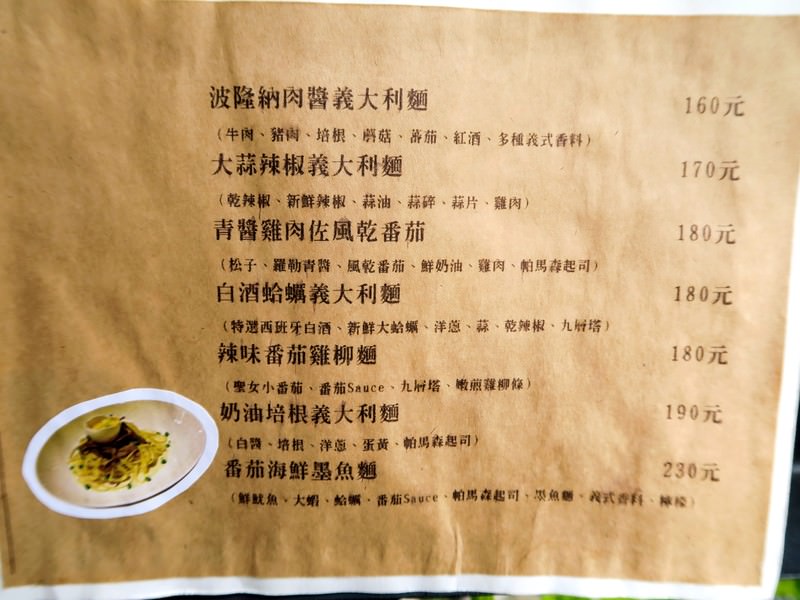 波隆納肉醬義大利麵 160元
(牛肉、豬肉、培根、蘑菇、蕃茄、紅酒、多種義式香料)
大蒜辣椒義大利麵 170元
(乾辣椒、新鮮辣椒、蒜油、蒜碎、蒜片、雞肉)
青醬雞肉佐風乾番茄 180元
(松子、羅勒青醬、風乾番茄、鮮奶油、雞肉、帕馬森起司)
白酒蛤蠣義大利麵 180元
(特選西班牙白酒、新鮮大蛤蠣、洋蔥、蒜、乾辣椒、九層塔)
辣味番茄雞柳麵 180元
(聖女小番茄、番茄Sauce、九層塔、嫩煎雞柳條)
奶油培根義大利麵 190元
(白醬、培根、洋蔥、蛋黃、帕馬森起司)
番茄海鮮墨魚麵 230元
(鮮魷魚、大蝦、蛤蠣、番茄Sauce、帕馬森起司、墨魚麵、義式香料、檸檬)